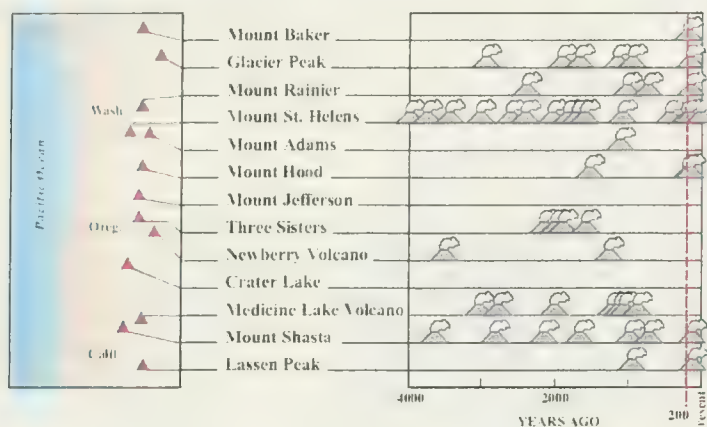 Pacific Ocean
Wash
Oreg
Calif
Mount Baker
Glacier Peak
Mount Rainier
Mount St. Helens
Mount Adams
Mount Hood
Mount Jefferson
Three Sisters
Newberry Volcano
Crater Lake
Medicine Lake Volcano
Mount Shasta
Lassen Peak
4000
2000
200
Present
YEARS AGO